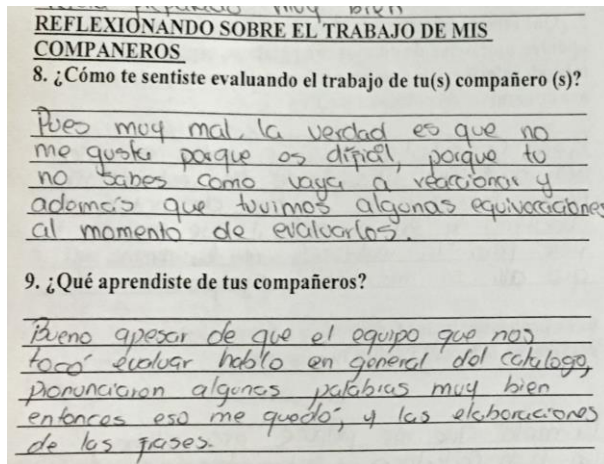 muy bien
REFLEXIONANDO SOBRE EL TRABAJO DE MIS
COMPAÑEROS
8. ¿Cómo te sentiste evaluando el trabajo de tu(s) compañero (s)?
Pues muy mal, la verdad es que no
me gusta porque es dificil, porque tu
no sabes como vaya a reaccionar y
además que tuvimos algunas equivocaciones
al momento de evaluarlos.
9. ¿Qué aprendiste de tus compañeros?
Bueno apesar de que el equipo que nos
tocó evaluar hablo en general del catalogo,
pronunciaron algunas palabras muy bien
entonces eso me quedó, y las elaboraciones
de las frases.